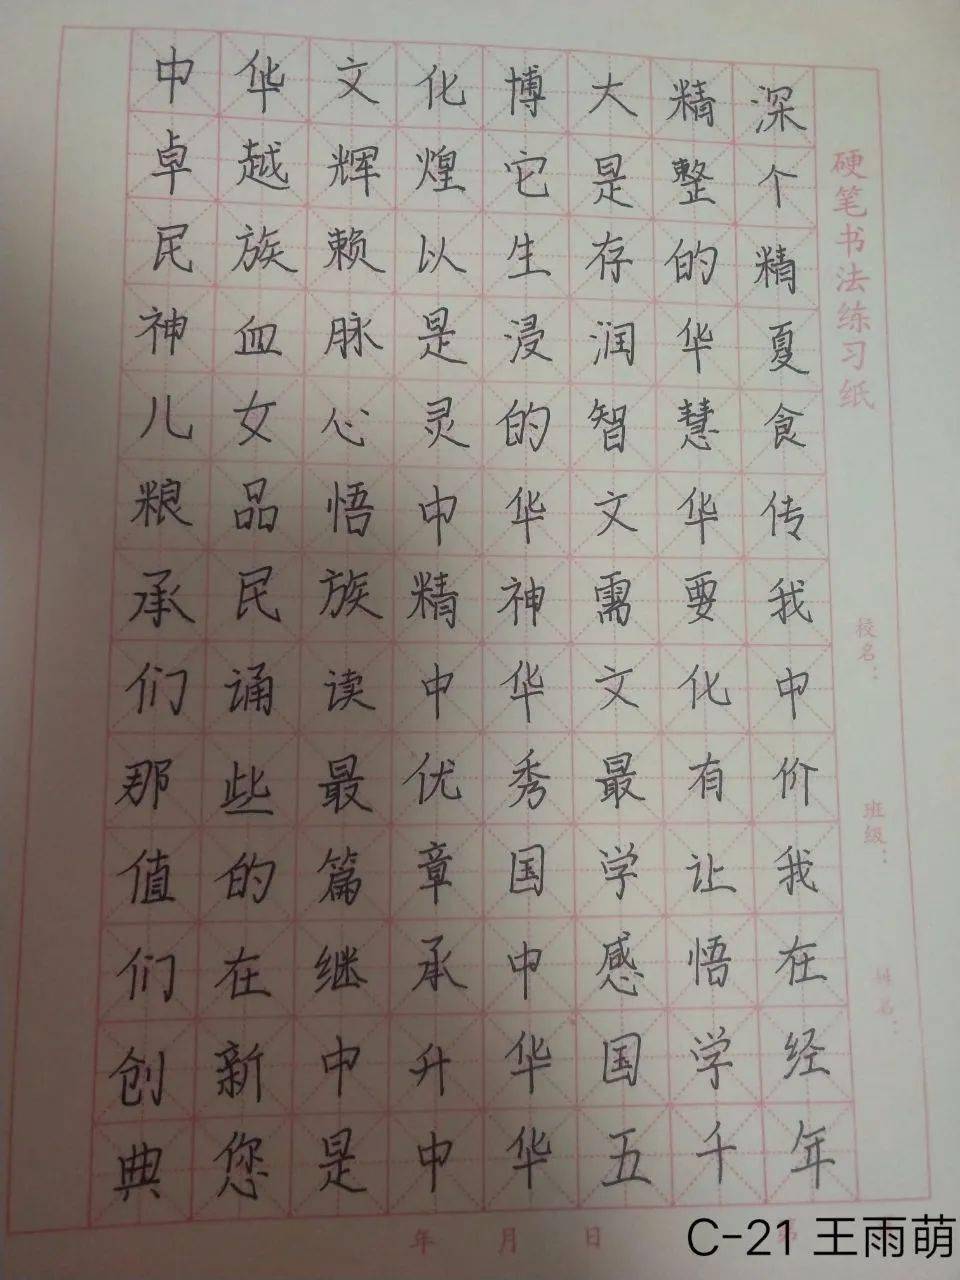 中华文化博大精深
卓越辉煌它是整个
民族赖以生存的精
神血脉是浸润华夏
儿女心灵的智慧食
粮品悟中华文华传
承民族精神需要我
们诵读中华文化中
那些最优秀最有价
值的篇章国学让我
们在继承中感悟在
创新中升华国学经
典您是中华五千年
硬笔书法练习纸
校名：
班级：
姓名：
年 月 日 第
C-21 王雨萌